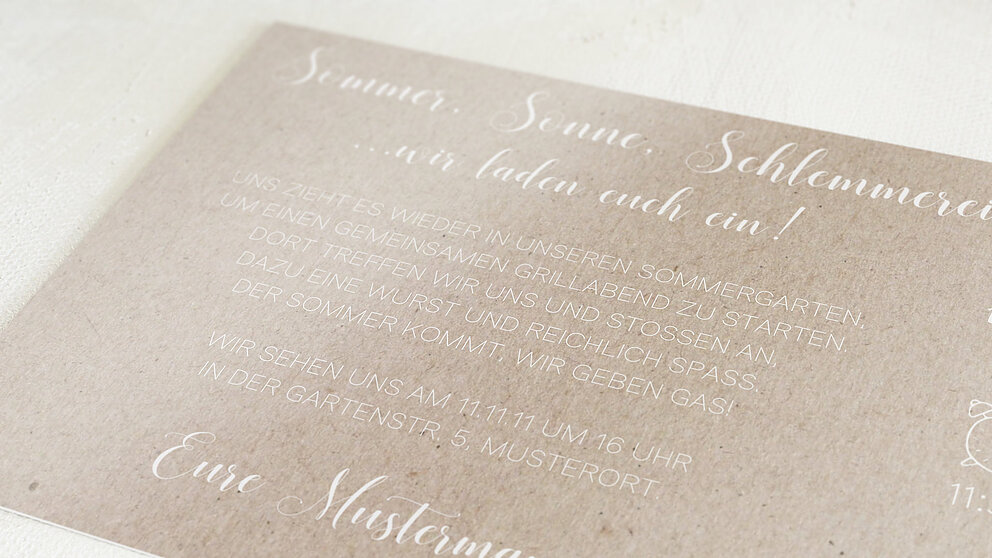 Sommer, Sonne, Schlemmerei
...wir laden euch ein!
UNS ZIEHT ES WIEDER IN UNSEREN SOMMERGARTEN,
UM EINEN GEMEINSAMEN GRILLABEND ZU STARTEN.
DORT TREFFEN WIR UNS UND STOSSEN AN,
DAZU EINE WURST UND REICHLICH SPASS.
DER SOMMER KOMMT, WIR GEBEN GAS!
WIR SEHEN UNS AM 11.11.11 UM 16 UHR
IN DER GARTENSTR. 5, MUSTERORT.
Eure